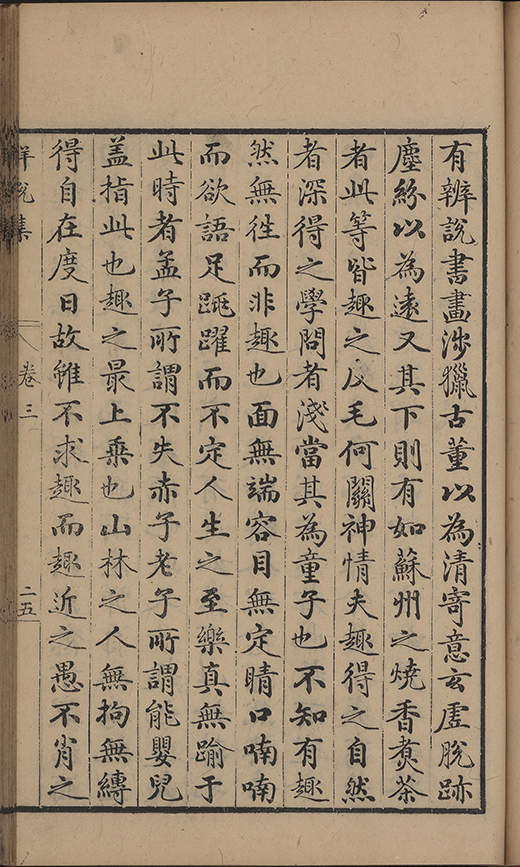 有辨說書畫涉獵古董以為清寄意玄虛脫跡
塵紛以為遠又其下則有如蘇州之燒香煑茶
者此等皆趣之皮毛何關神情夫趣得之自然
者深得之學問者淺當其為童子也不知有趣
然無徃而非趣也面無端容目無定睛口喃喃
而欲語足跳躍而不定人生之至樂真無踰于
此時者孟子所謂不失赤子老子所謂能嬰兒
盖指此也趣之最上乘也山林之人無拘無縛
得自在度日故雖不求趣而趣近之愚不肖之
卷三
二五